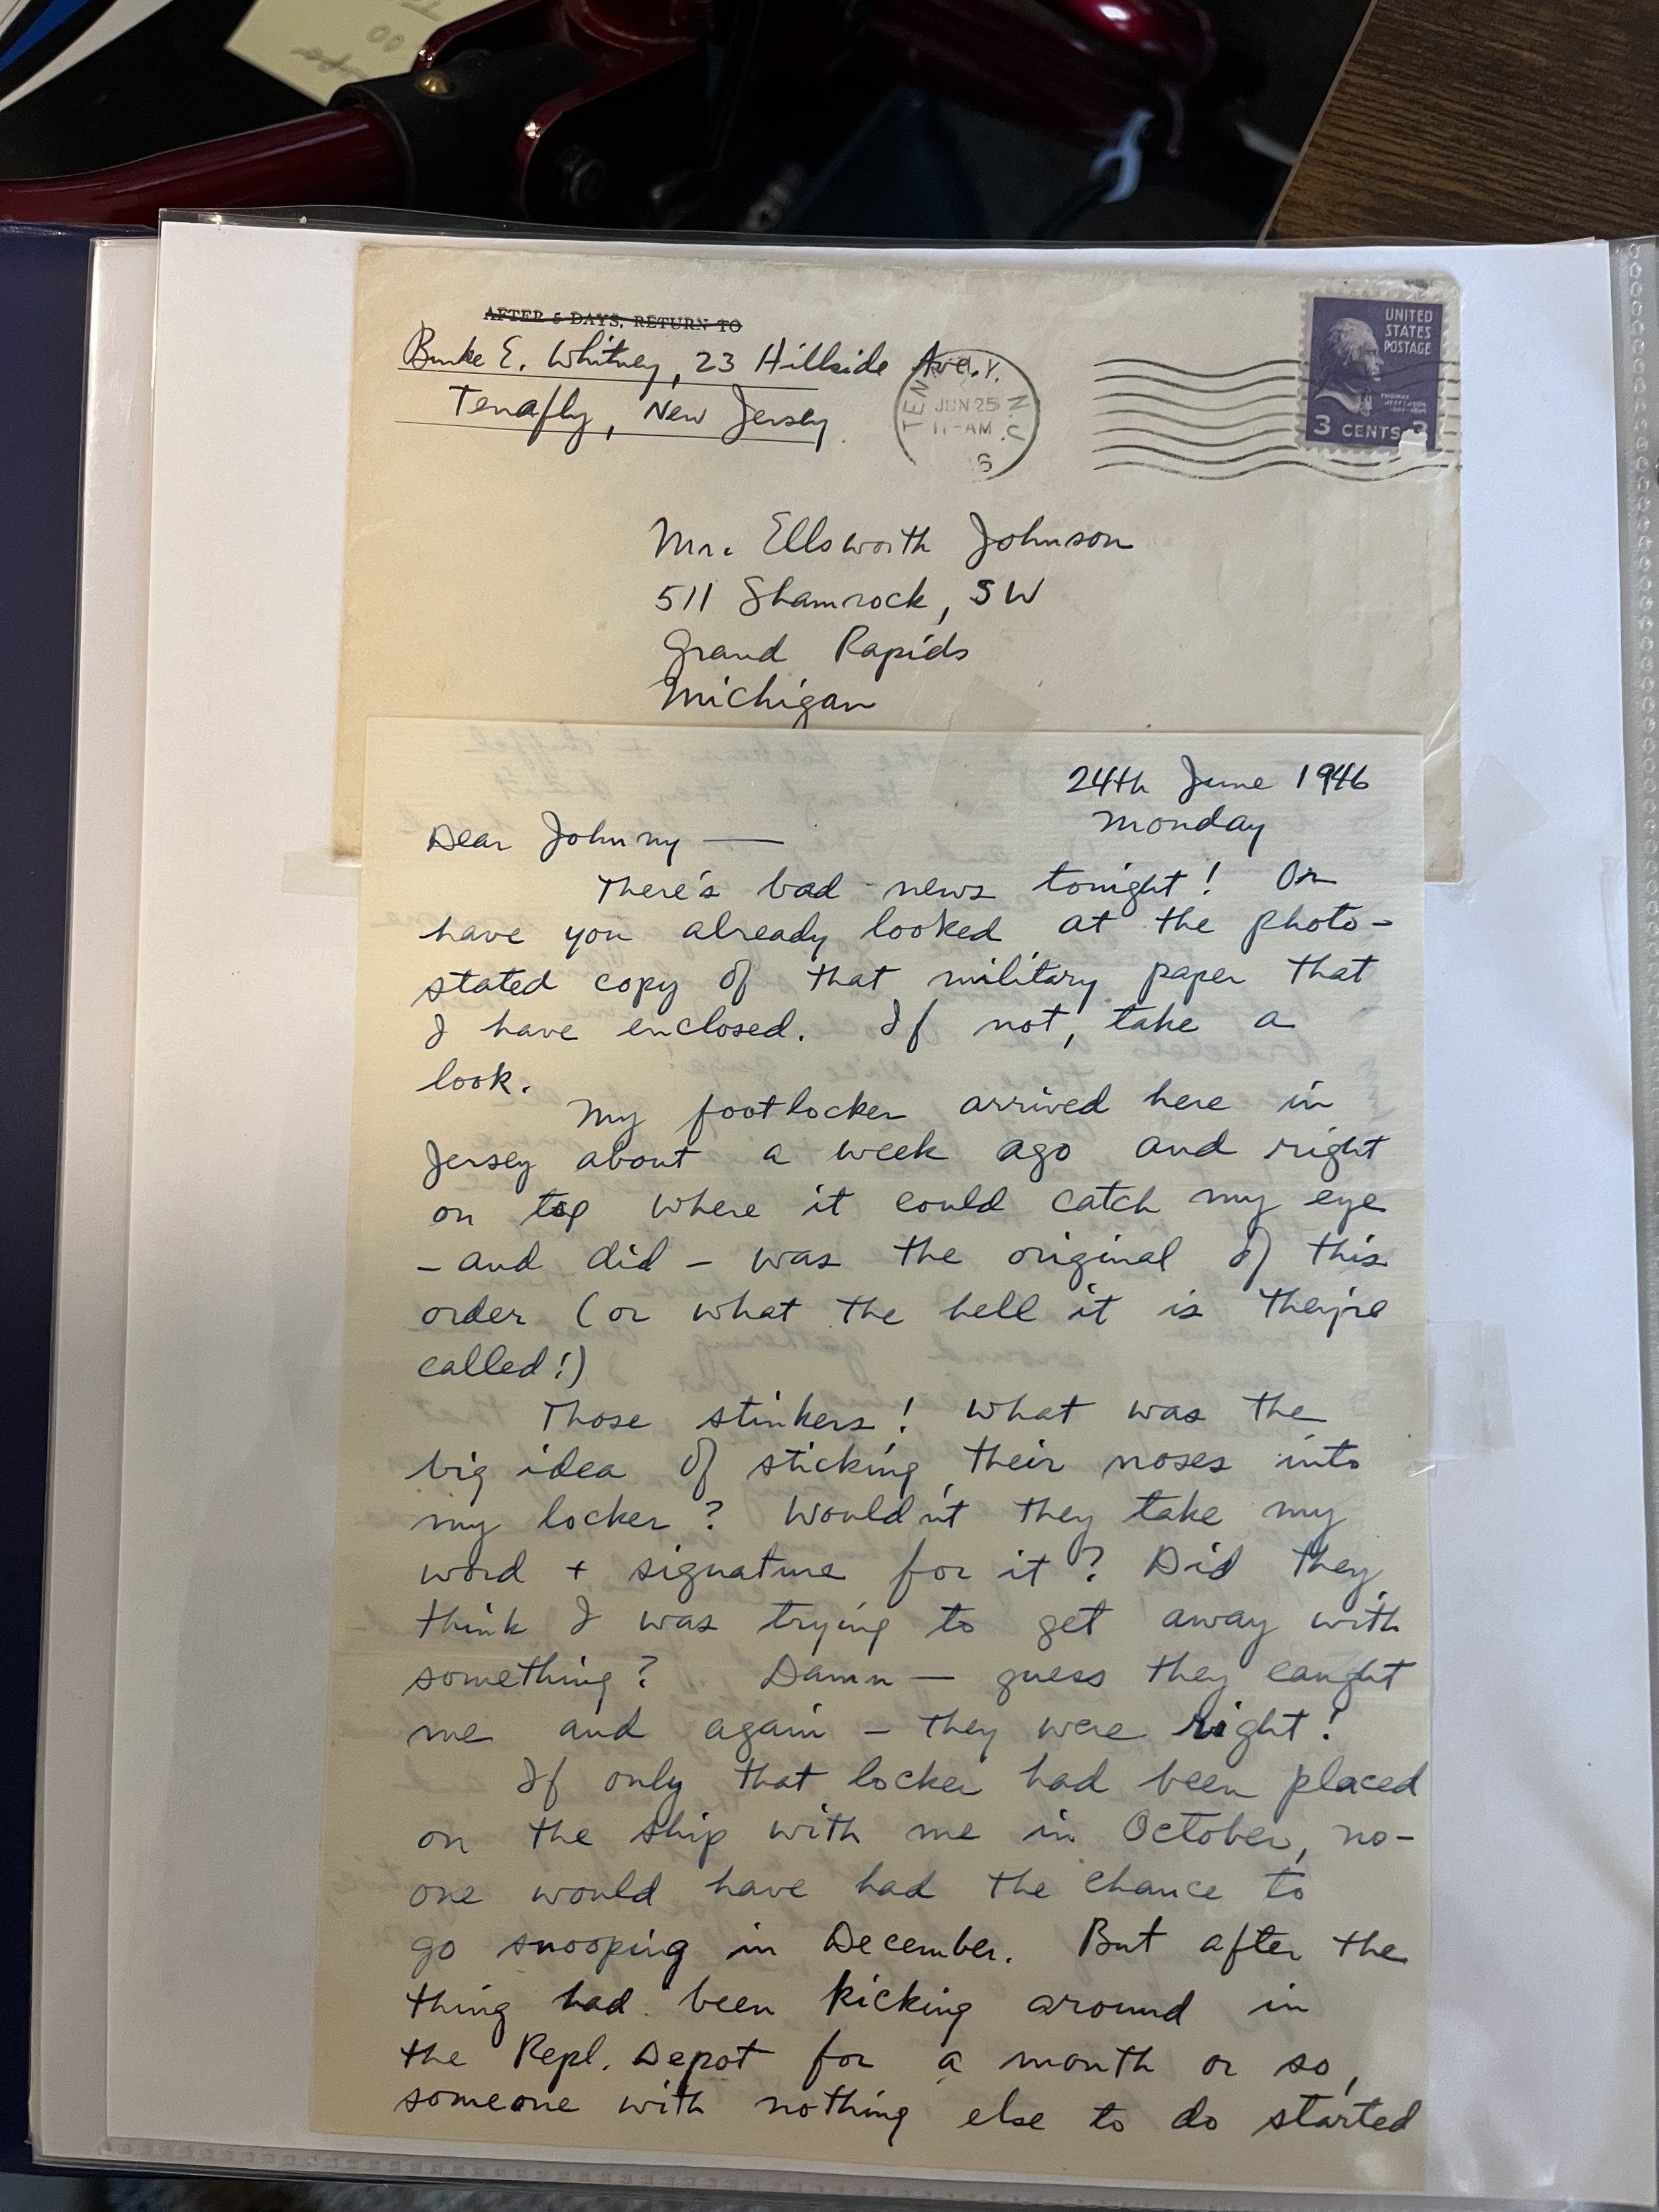 AFTER 5 DAYS, RETURN TO
Burke E. Whitney, 23 Hillside Ave.
Tenafly, New Jersey
JUN 25
11-AM
N.J.
6
UNITED
STATES
POSTAGE
THOMAS
JEFFERSON
3 CENTS 3
Mr. Ellsworth Johnson
511 Shamrock, SW
Grand Rapids
Michigan
24th June 1946
Monday
Dear Johnny —
There's bad news tonight! Or
have you already looked at the photo-
stated copy of that military paper that
I have enclosed. If not, take a
look.
My footlocker arrived here in
Jersey about a week ago and right
on top where it could catch my eye
- and did - was the original of this
order (or what the hell it is they're
called!)
Those stinkers! What was the
big idea of sticking their noses into
my locker? Wouldn't they take my
word + signature for it? Did they
think I was trying to get away with
something? Damn — guess they caught
me and again - they were right!
If only that locker had been placed
on the ship with me in October, no-
one would have had the chance to
go snooping in December. But after the
thing had been kicking around in
the Repl. Depot for a month or so,
someone with nothing else to do started